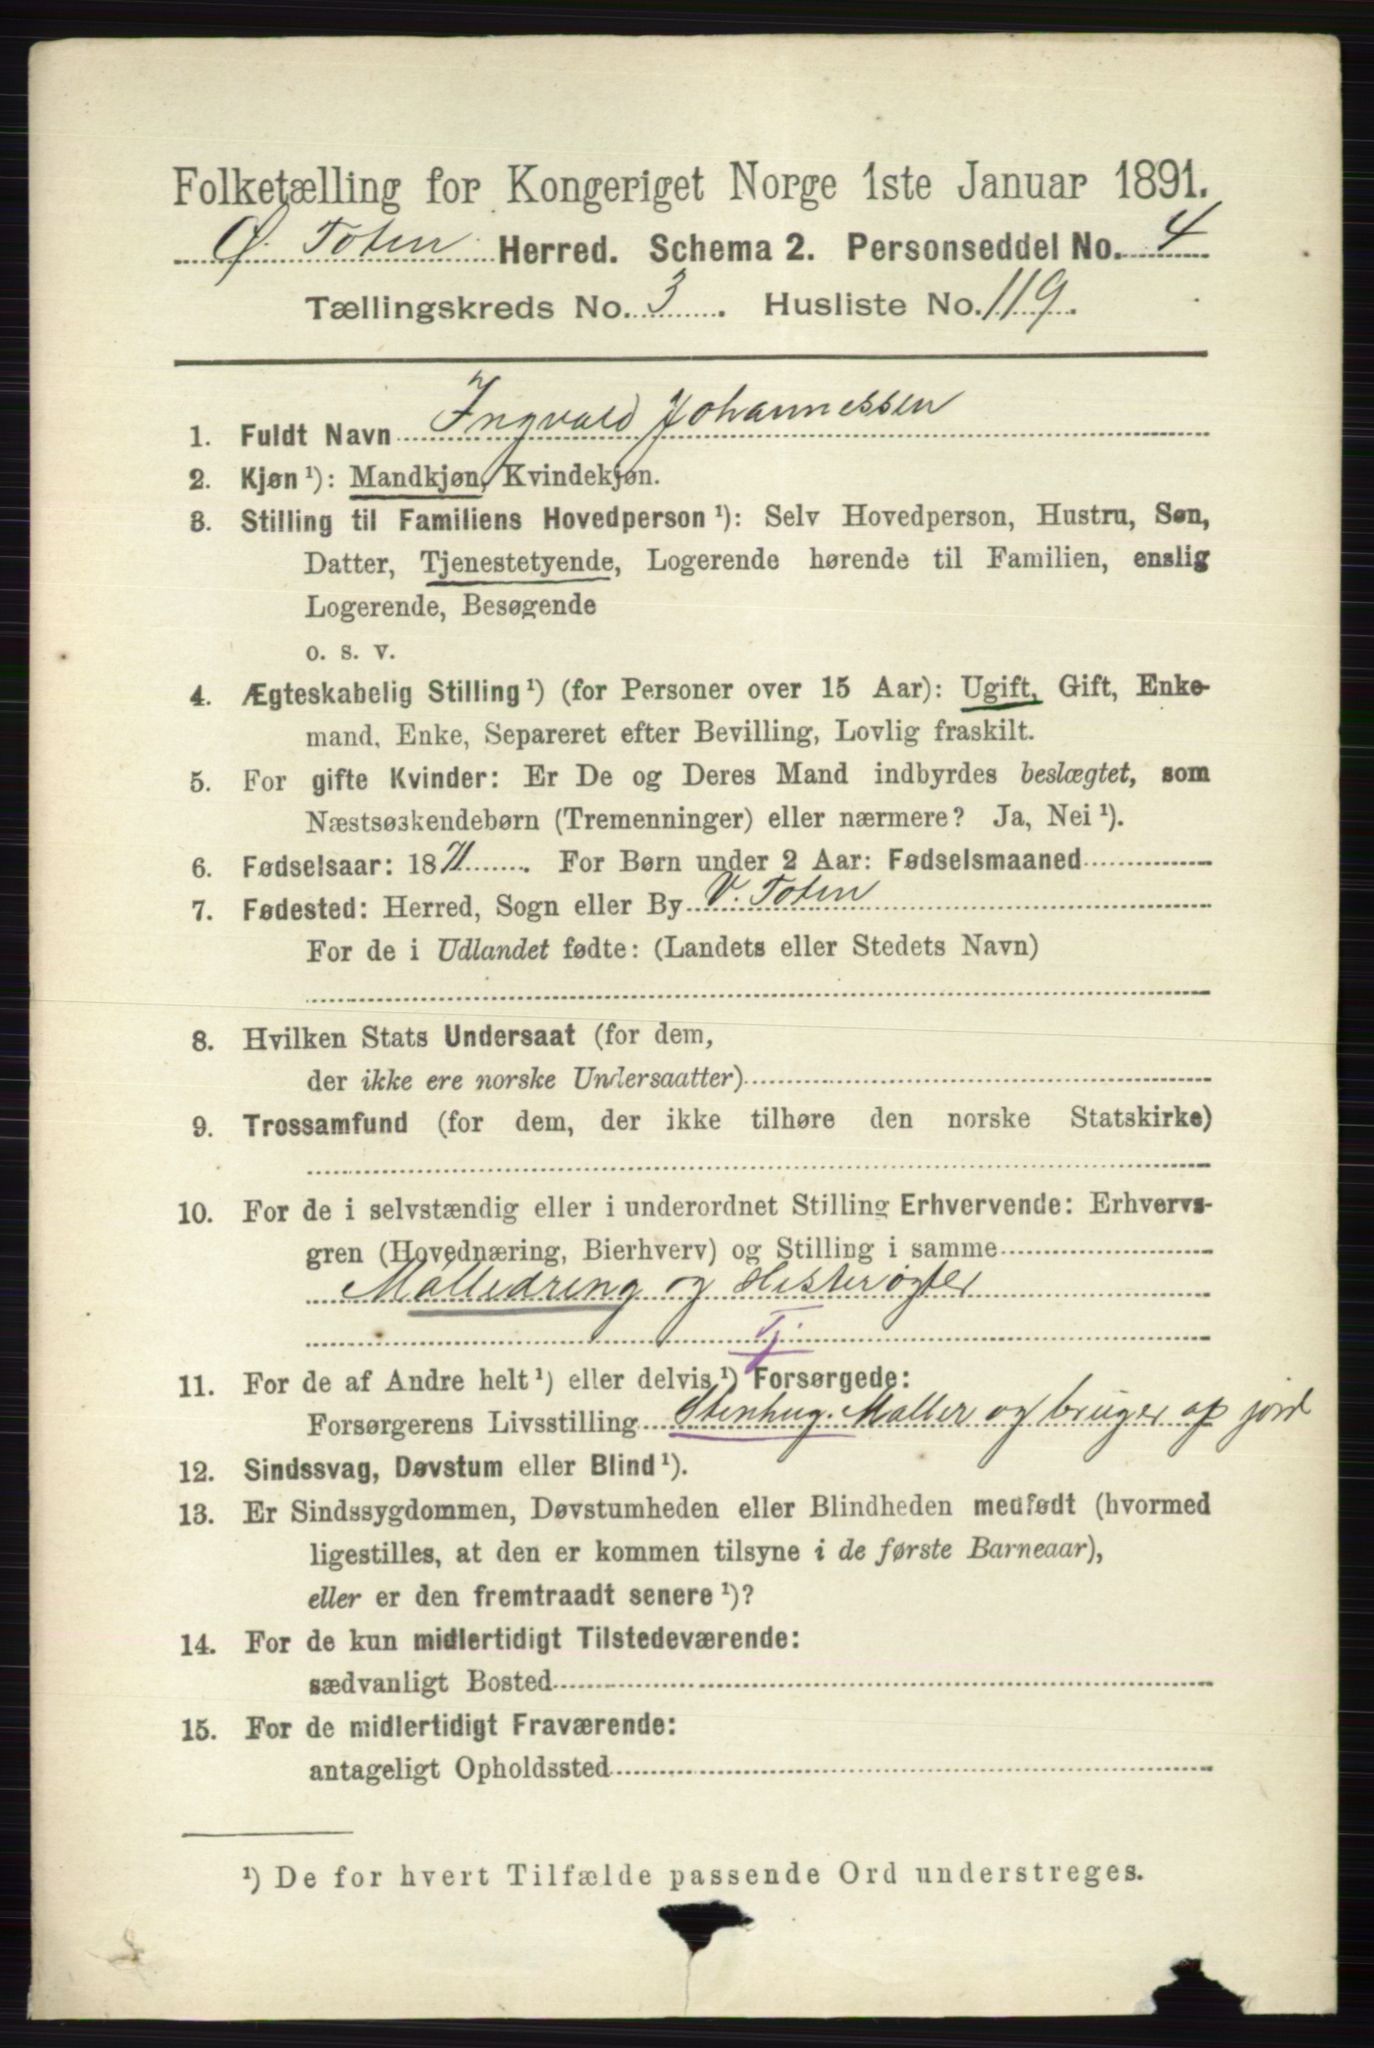 Folketælling for Kongeriget Norge 1ste Januar 1891.
Ø. Toten Herred. Schema 2. Personseddel No. 4
Tællingskreds No. 3. Husliste No. 119.
1. Fuldt Navn Ingvald Johannessen
2. Kjøn ¹): Mandkjøn, Kvindekjøn.
3. Stilling til Familiens Hovedperson ¹): Selv Hovedperson, Hustru, Søn,
Datter, Tjenestetyende, Logerende hørende til Familien, enslig
Logerende, Besøgende
o. s. v.
4. Ægteskabelig Stilling ¹) (for Personer over 15 Aar): Ugift, Gift, Enke-
mand, Enke, Separeret efter Bevilling, Lovlig fraskilt.
5. For gifte Kvinder: Er De og Deres Mand indbyrdes beslægtet, som
Næstsøskendebørn (Tremenninger) eller nærmere? Ja, Nei ¹).
6. Fødselsaar: 1871. For Børn under 2 Aar: Fødselsmaaned
7. Fødested: Herred, Sogn eller By V. Toten
For de i Udlandet fødte: (Landets eller Stedets Navn)
8. Hvilken Stats Undersaat (for dem,
der ikke ere norske Undersaatter)
9. Trossamfund (for dem, der ikke tilhøre den norske Statskirke)
10. For de i selvstændig eller i underordnet Stilling Erhvervende: Erhvervs-
gren (Hovednæring, Bierhverv) og Stilling i samme
Malledreng og Hesterøgter
Tj.
11. For de af Andre helt ¹) eller delvis ¹) Forsørgede:
Forsørgerens Livsstilling Stenhug. Maller og bruger op jord
12. Sindssvag, Døvstum eller Blind ¹).
13. Er Sindssygdommen, Døvstumheden eller Blindheden medfødt (hvormed
ligestilles, at den er kommen tilsyne i de første Barneaar),
eller er den fremtraadt senere ¹)?
14. For de kun midlertidigt Tilstedeværende:
sædvanligt Bosted
15. For de midlertidigt Fraværende:
antageligt Opholdssted
¹) De for hvert Tilfælde passende Ord understreges.